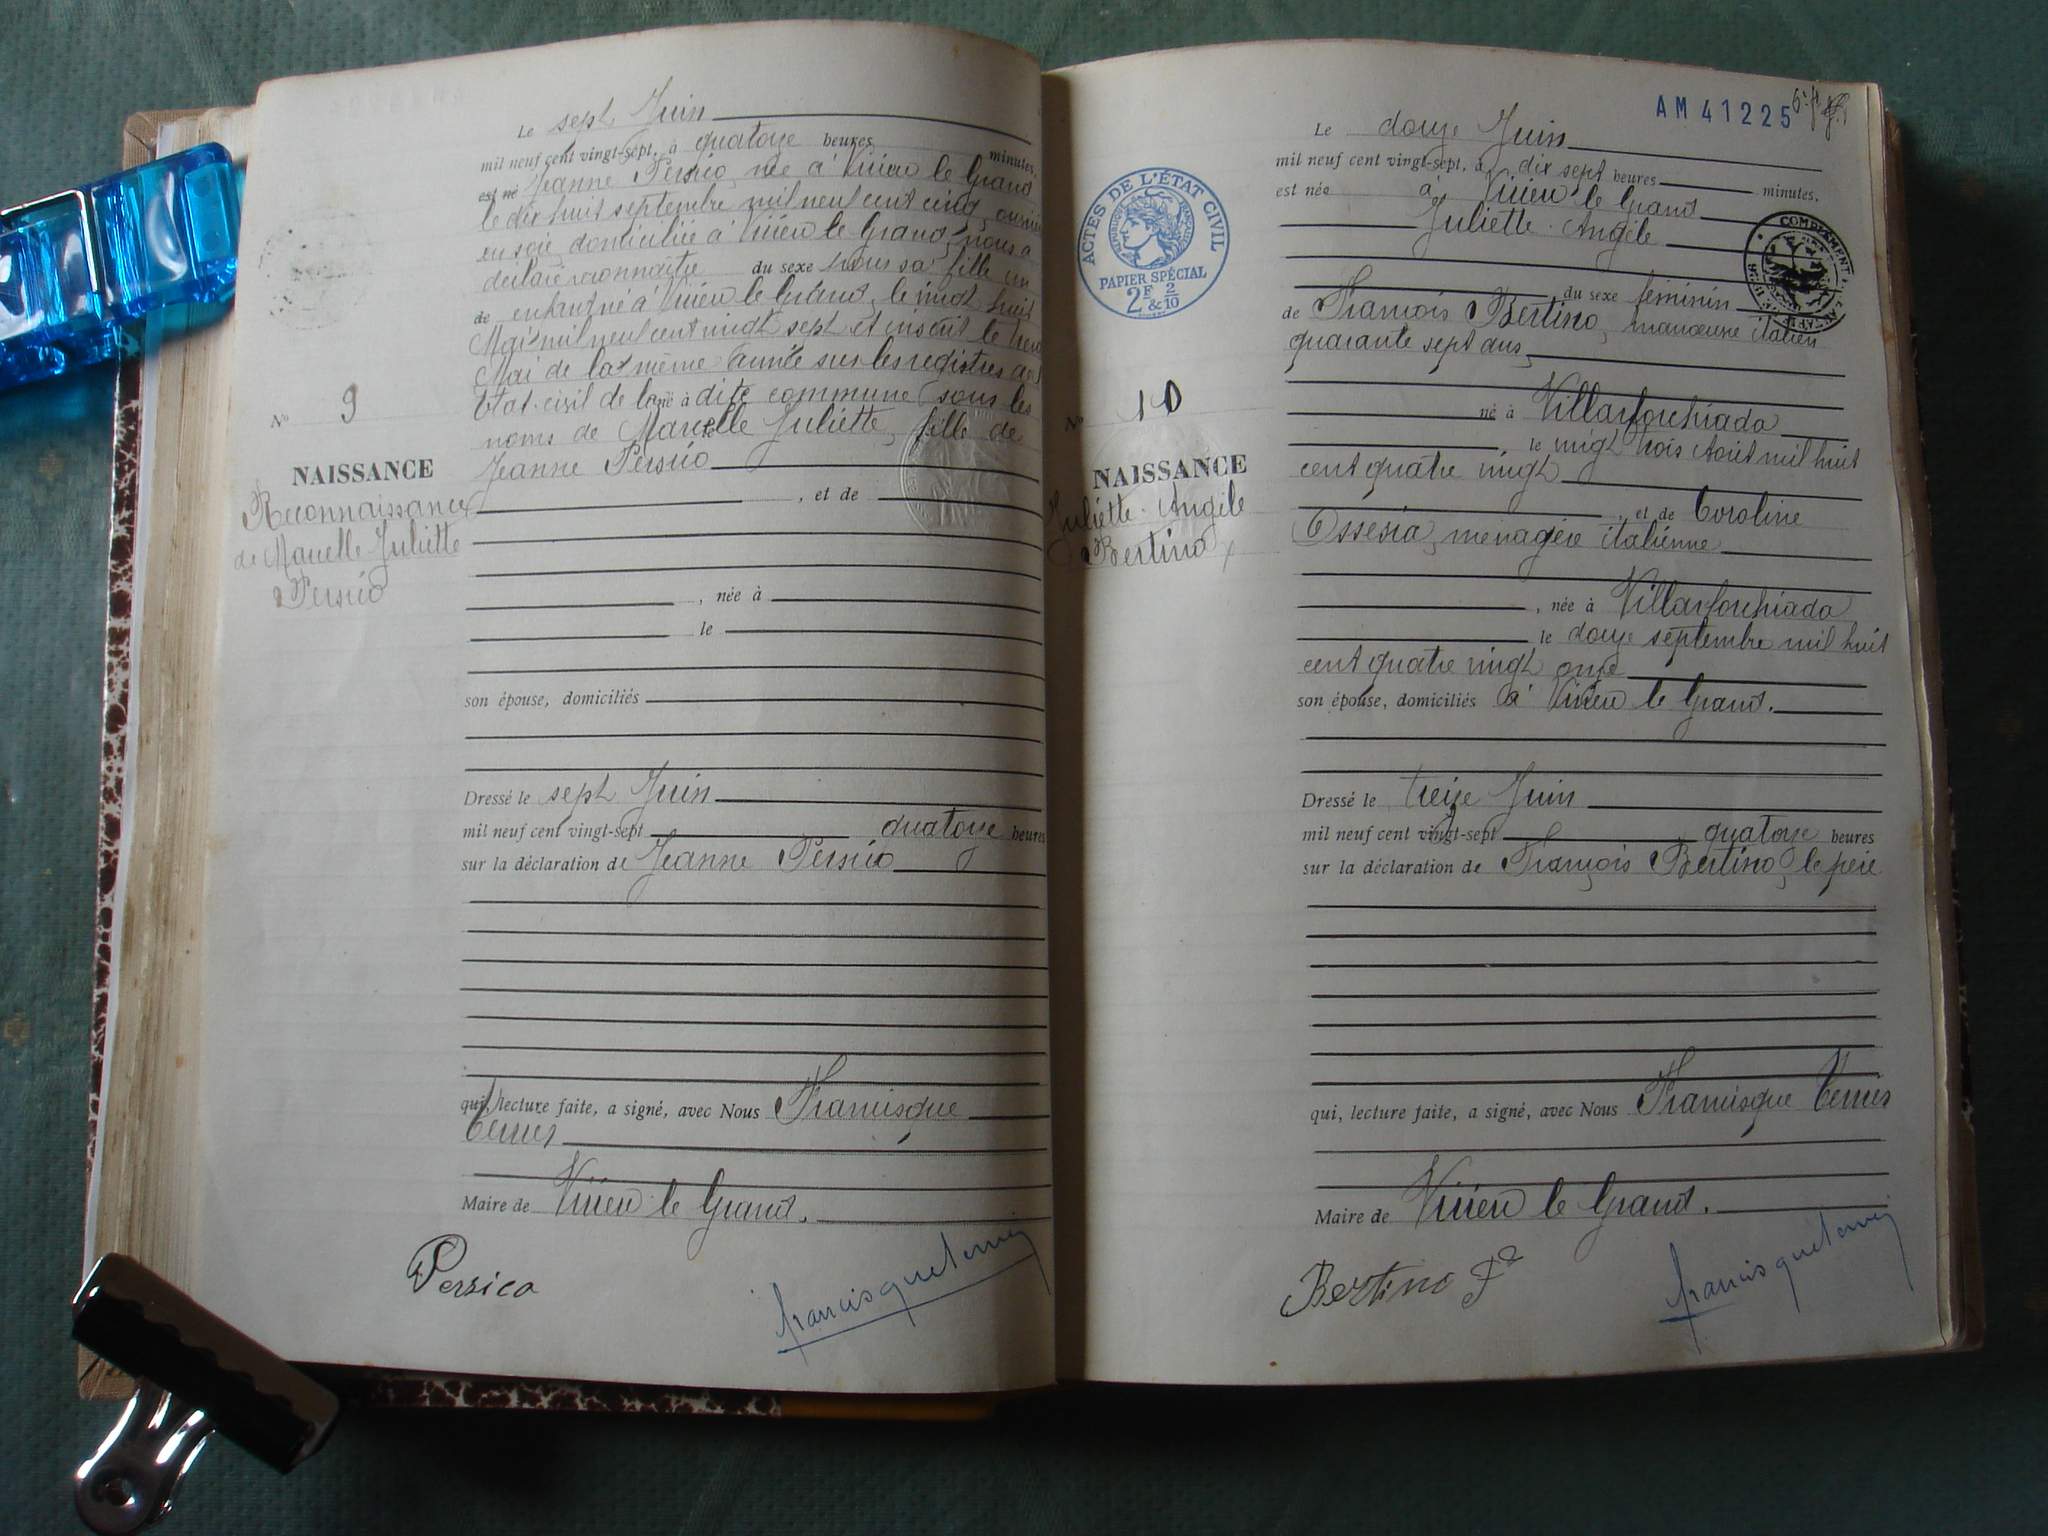 Le sept Juin
mil neuf cent vingt-sept, à quatorze heures minutes,
est né Jeanne Persico, née à Virieu le Grand
le dix huit septembre mil neuf cent cinq, ouvrière
en soie, domiciliée à Virieu le Grand, nous a
déclaré reconnaitre du sexe pour sa fille un
de enfant né à Virieu le Grand, le vingt huit
Mai mil neuf cent vingt sept et inscrit le
Mai de la même année sur les registres de
Etat-civil de la né à dite commune sous les
noms de Marcelle Juliette, fille de
Jeanne Persico
, et de
, née à
le
son épouse, domiciliés
Dressé le sept Juin
mil neuf cent vingt-sept quatorze heures
sur la déclaration de Jeanne Persico
qui, lecture faite, a signé, avec Nous Francisque
Maire de Virieu le Grand.
Persico
N° 9
NAISSANCE
Reconnaissance
de Marcelle Juliette
Persico
AM 41225
Le douze Juin
mil neuf cent vingt-sept, à dix sept heures minutes,
est née à Virieu le Grand
Juliette Angèle
du sexe féminin
de François Bertino, manœuvre italien
quarante sept ans,
né à Villarfochiado
, le vingt trois Août mil huit
cent quatre vingt
, et de Caroline
Ossesia, ménagère italienne
, née à Villarfochiado
le douze septembre mil huit
cent quatre vingt onze
son épouse, domiciliés à Virieu le Grand.
Dressé le treize Juin
mil neuf cent vingt-sept quatorze heures
sur la déclaration de François Bertino, le père
qui, lecture faite, a signé, avec Nous Francisque
Maire de Virieu le Grand.
Bertino
N° 10
NAISSANCE
Juliette Angèle
Bertino
ACTES DE L'ÉTAT CIVIL
RÉPUBLIQUE FRANÇAISE
PAPIER SPÉCIAL
2F & 2/10